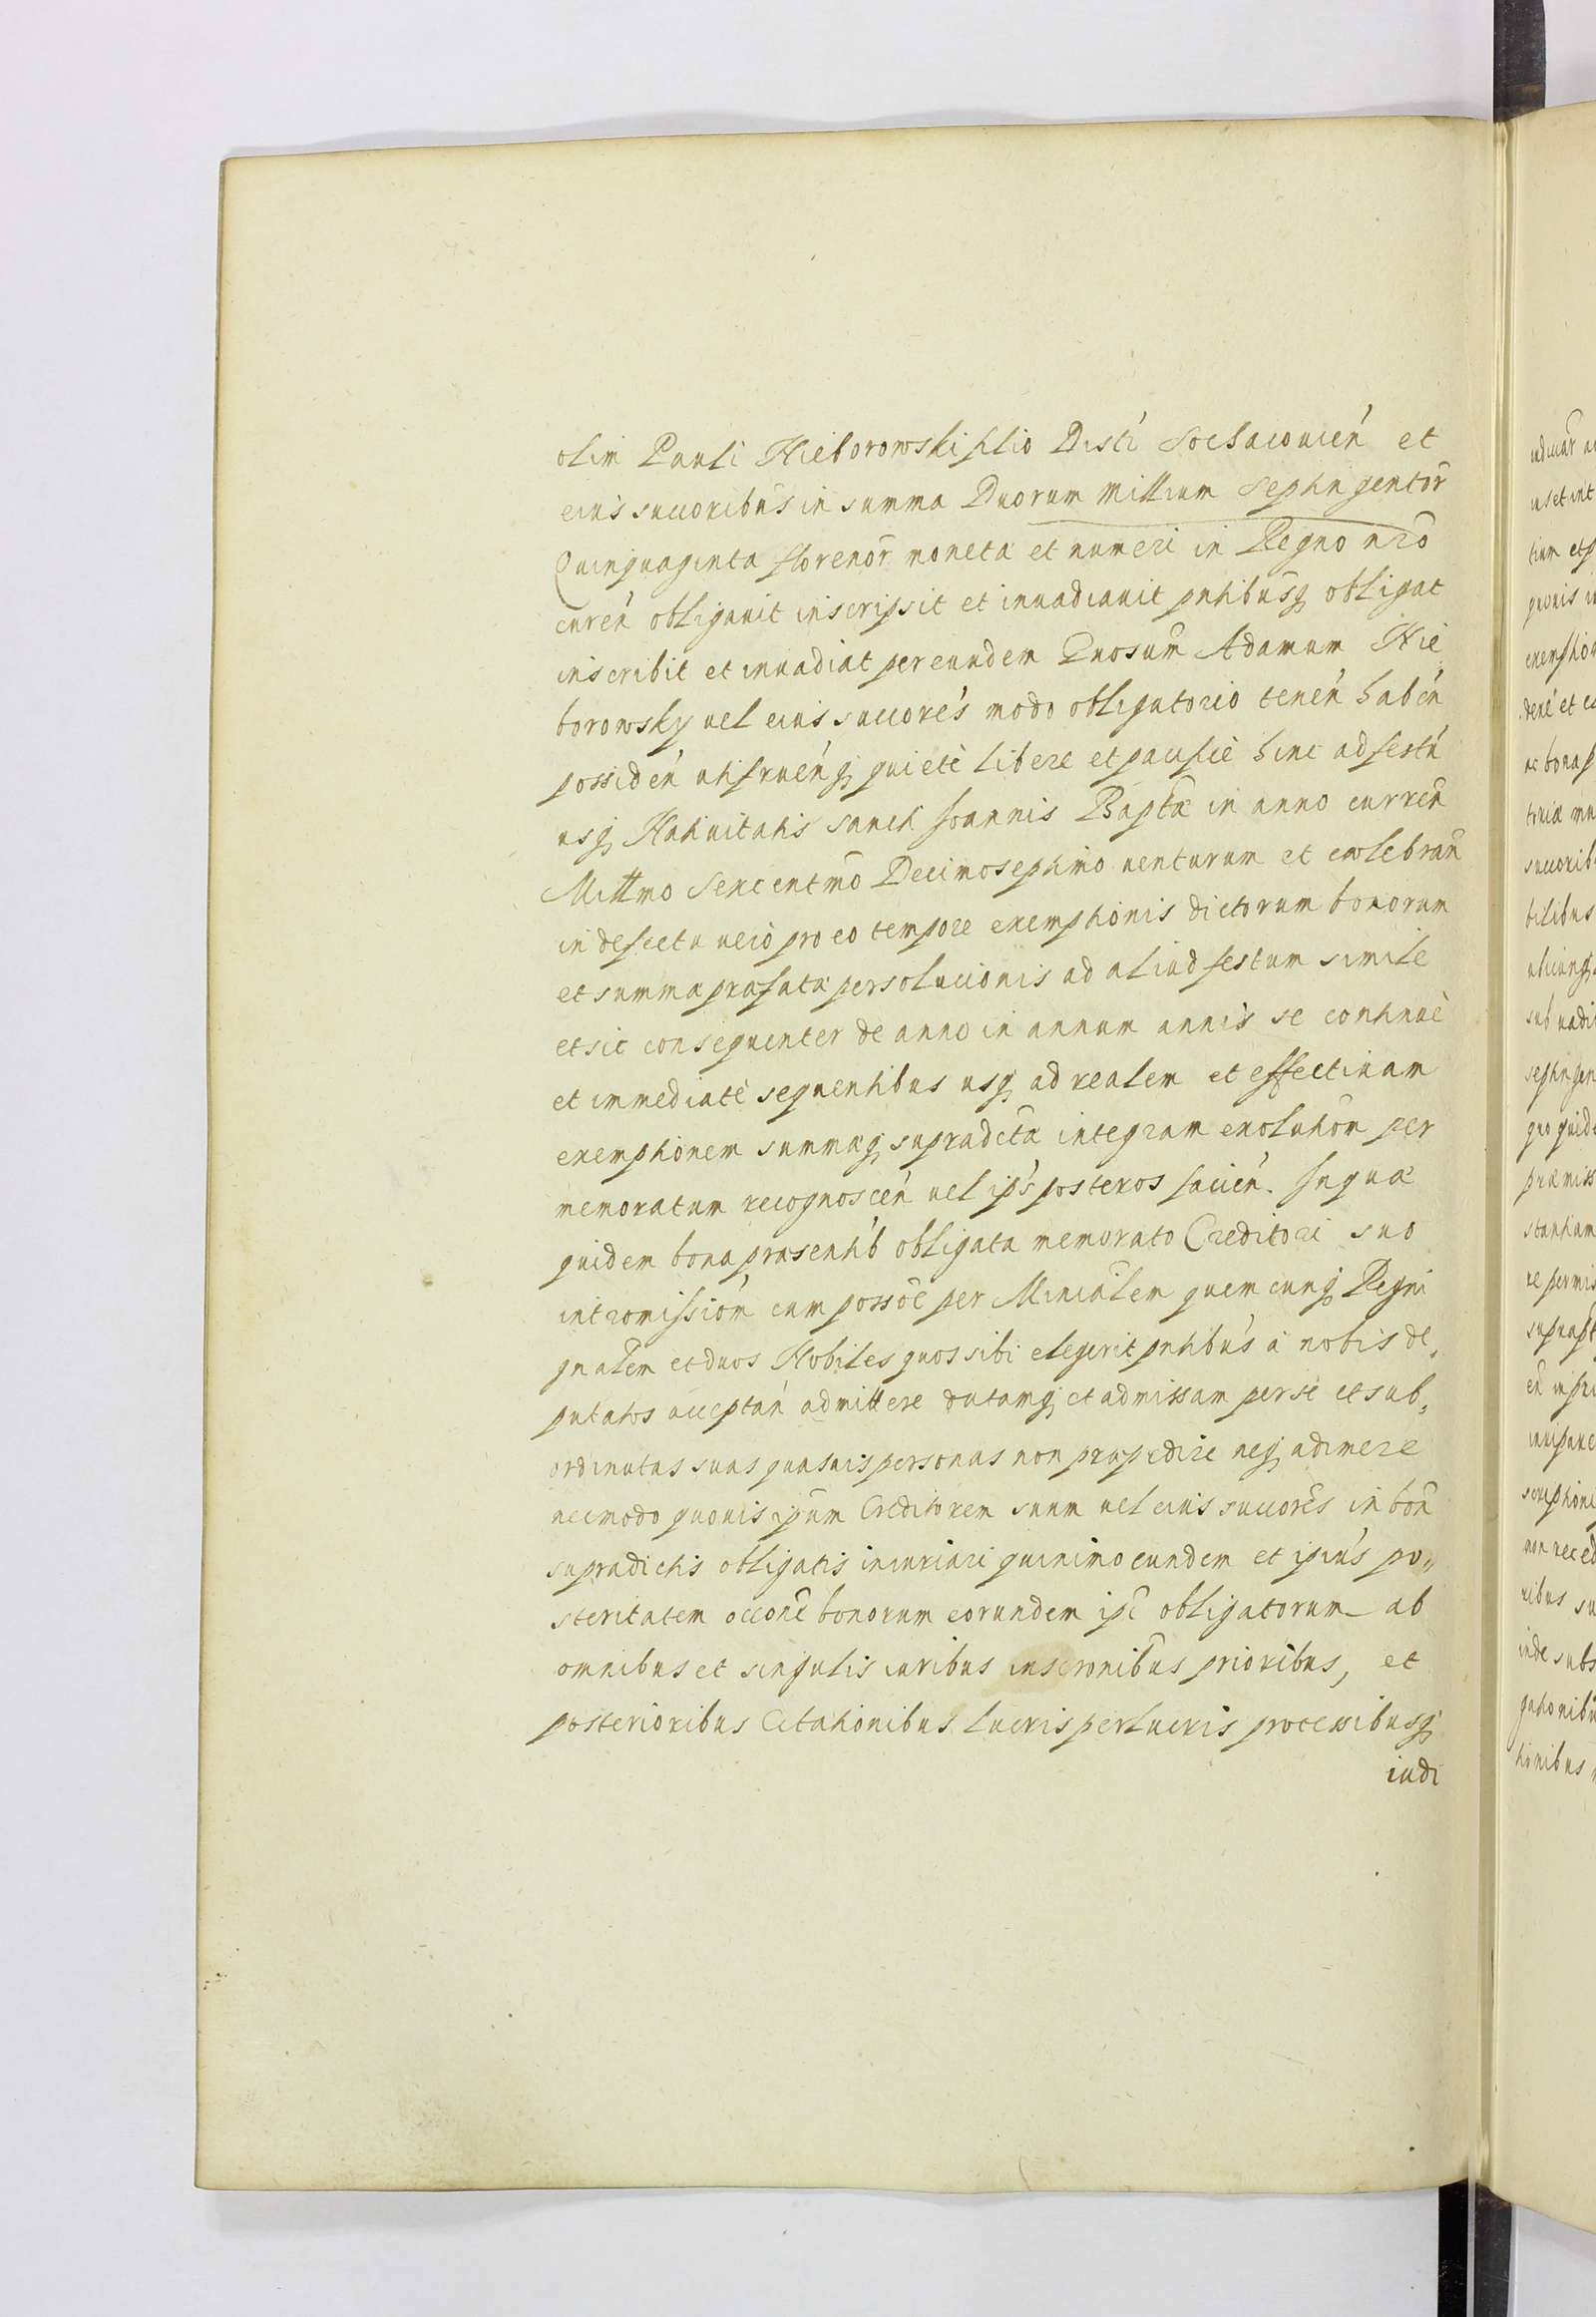 olim Pauli Nieborowski filio Distı́ Sochaczouień et
eius succoribus in summa Duorum Millium Septingentor̄
Quinquaginta florenor̄ monetæ et numeri in Regno nr̄o
cureń obligauit inscripsit et inuadiauit pn̄tibusq; obligat
inscribit et inuadiat per eundem Gnosum̄ Adamum Nie
borowsky uel eius succores modo obligatorio teneń habeń
possideń utifrueńq; quietè libere et pacificè hinc ad festū
usq; Natiuitatis sancti Joannis Bapt̄æ in anno curreń
Mill̄mo Sexcentm̄o Decimoseptimo uenturum et cœlebrań
in defectu uerò pro eo tempore exemptionis dictorum bonorum
et summæ præfatæ persolucionis ad aliud festum simile
et sic consequenter de anno in annum annis se continuè
et immediatè sequentibus usq; ad realem et effectiuam
exemptionem summæq; supradctæ integram exolution̄ per
memoratum recognosceń uel ips̄ posteros facień. In quæ
quidem bona præsentib̄ obligata memorato Creditori suo
intromissioń cum poss̄oe per Minialem̄ quemcunq; Regni
gnalem̄ et duos Nobiles quos sibi elegerit pn̄tibus à nobis de„
putatos acceptań admittere datamq; et admissam per se et sub„
ordinatas suas quasuis personas non præpedire neq; adimere
nec modo quouis ipsum̄ Creditorem suum uel eius succores in bon̄
supradictis obligatis iniuriari quinimo eundem et ipius po„
steritatem occon̄e bonorum eorundem ip̄e obligatorum ab
omnibus et singulis iuribus inscronibus prioribus, et
posterioribus Citationibus lucris perlucris processibusq;
iudi